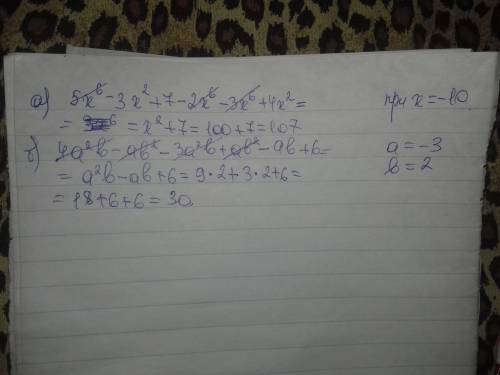 а) 5x⁶ - 3x² + 7 - 2x⁶ - 3x⁶ + 4x² = при x = -10
= = x² + 7 = 100 + 7 = 107
б) 4a²b - ab² - 3a²b + ab² - ab + 6 = a = -3
= a²b - ab + 6 = 9·2 + 3·2 + 6 = b = 2
= 18 + 6 + 6 = 30